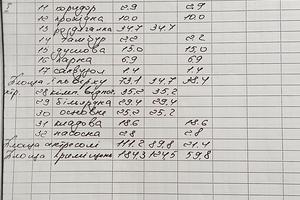 I 11 коридор 2.9 2.9
12 прохідна 10.0 10.0
13 роздягалка 34.7 34.7
14 тамбур 2.2
15 душова 15.0 15.0
16 парна 6.9 6.9
17 санвузол 1.4 1.4
Площа I поверху 73.1 34.7 38.4
28 кімн. відпоч. 35.2 35.2
29 більярдна 29.4 29.4
30 основне 25.2 25.2
31 кладова 18.6 18.6
32 насосна 2.8 2.8
Площа 111.2 89.8 21.4
Площа приміщень 184.3 124.5 59.8